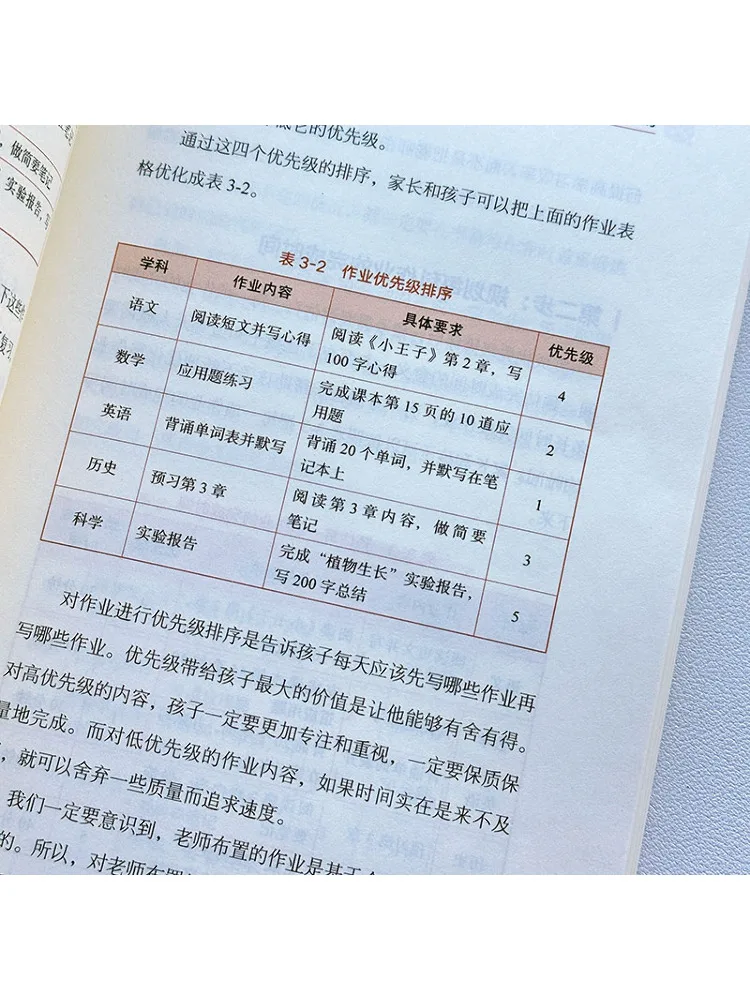 做简要笔记
实验报告，写
低它的优先级。
通过这四个优先级的排序，家长和孩子可以把上面的作业表
格优化成表 3-2。
表 3-2 作业优先级排序
学科 作业内容 具体要求 优先级
语文 阅读短文并写心得 阅读《小王子》第 2 章，写
100 字心得 4
数学 应用题练习 完成课本第 15 页的 10 道应
用题 2
英语 背诵单词表并默写 背诵 20 个单词，并默写在笔
记本上 1
历史 预习第 3 章 阅读第 3 章内容，做简要
笔记 3
科学 实验报告 完成“植物生长”实验报告，
写 200 字总结 5
对作业进行优先级排序是告诉孩子每天应该先写哪些作业再
写哪些作业。优先级带给孩子最大的价值是让他能够有舍有得。
对高优先级的内容，孩子一定要更加专注和重视，一定要保质保
量地完成。而对低优先级的作业内容，如果时间实在是来不及
，就可以舍弃一些质量而追求速度。
我们一定要意识到，老师布置的作业是基于
的。所以，对老师布置